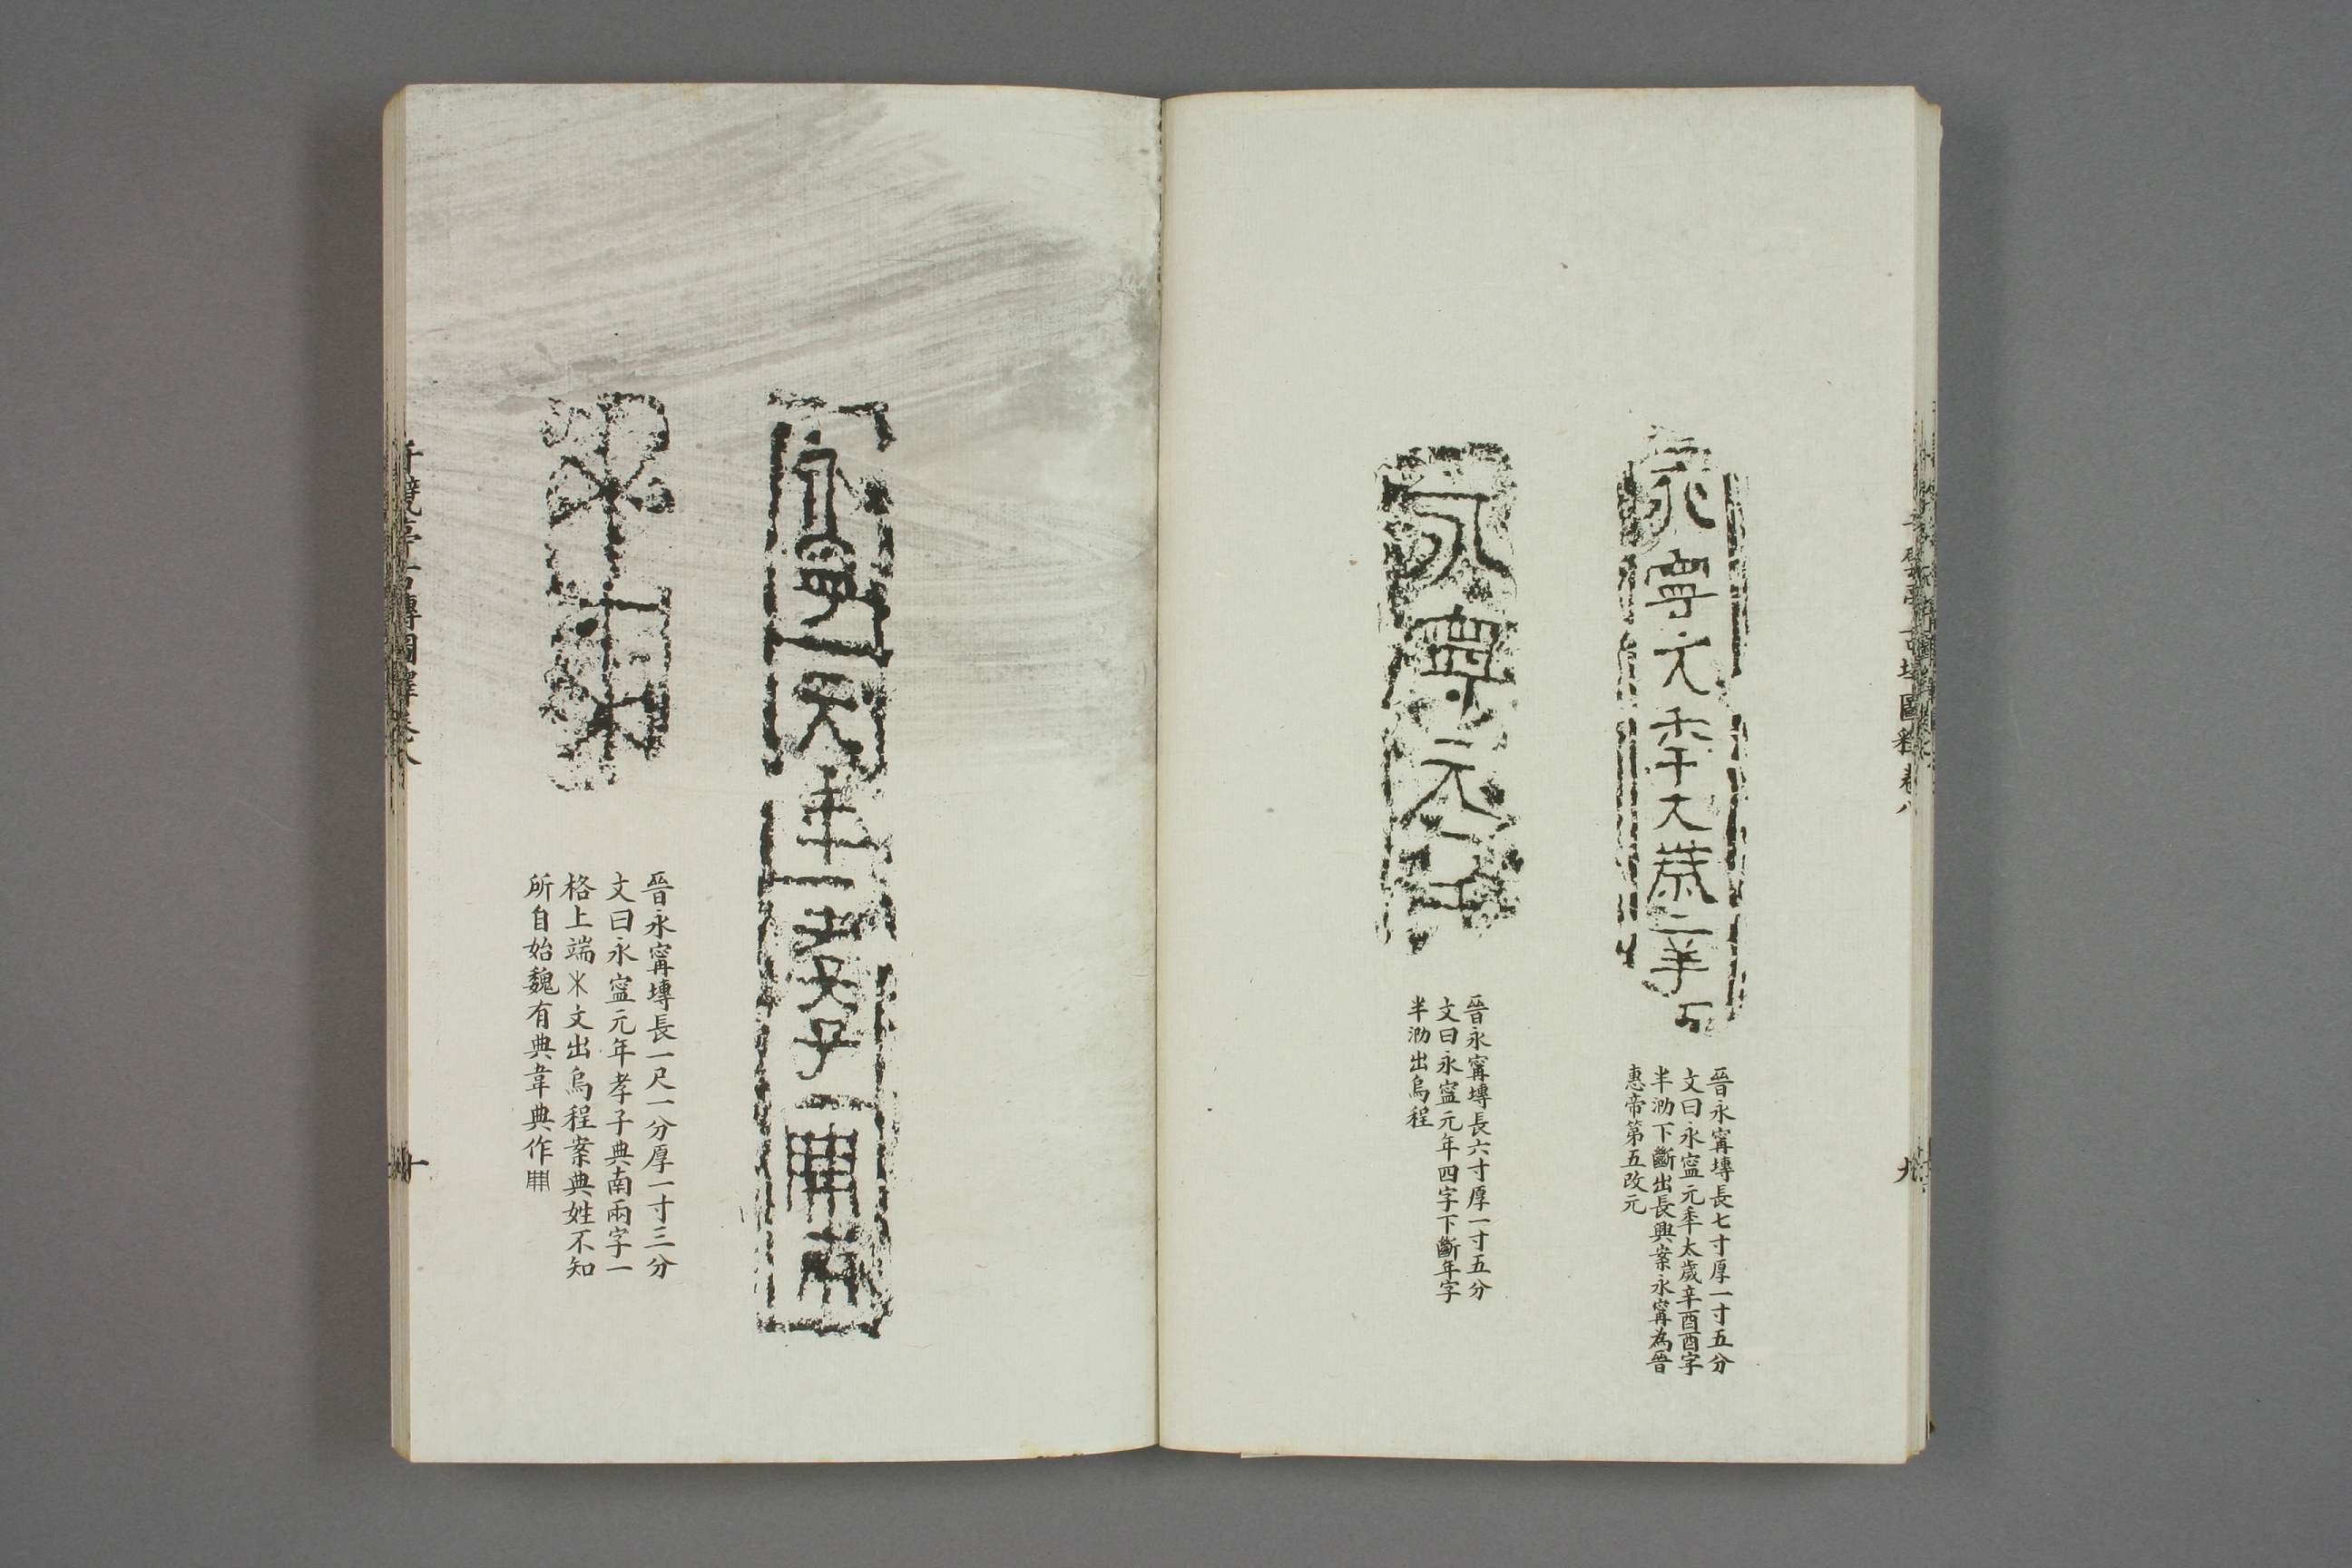 永寧元年太歲辛酉
晉永寗塼長七寸厚一寸五分
文曰永寍元秊太歲辛酉酉字
半泐下斷出長興案永寗為晉
惠帝第五改元
永寧元年
晉永寗塼長六寸厚一寸五分
文曰永寍元年四字下斷年字
半泐出烏程
九
永寧元年孝子典南
晉永寗塼長一尺一分厚一寸三分
文曰永寍元年孝子典南兩字一
格上端文出烏程案典姓不知
所自始魏有典韋典作
十